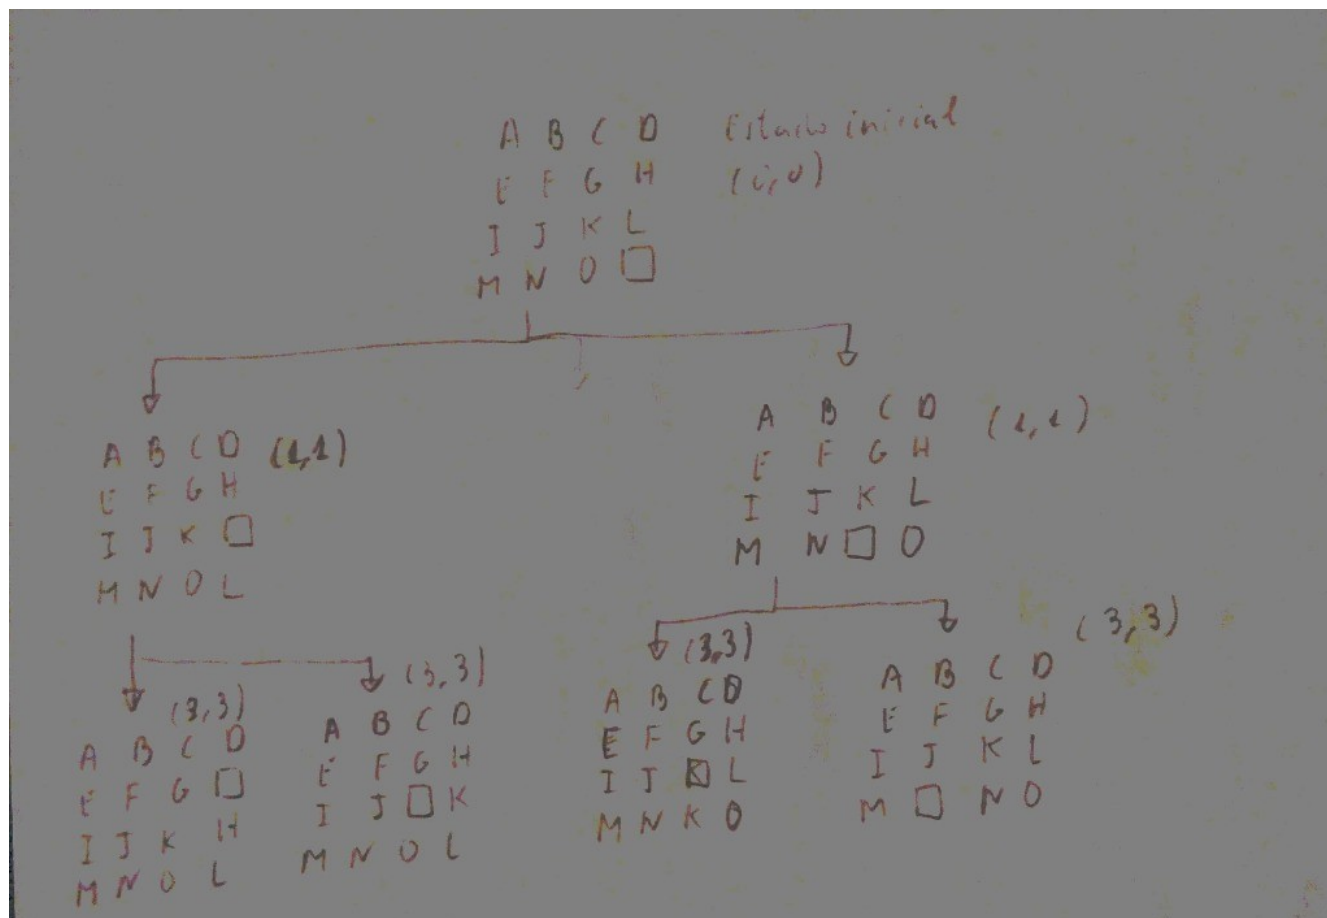 A B C D Estado inicial
E F G H (0,0)
I J K L
M N O □
A B C D (1,1)
E F G H
I J K □
M N O L
A B C D (1,1)
E F G H
I J K L
M N □ O
(3,3)
A B C D
E F G □
I J K H
M N O L
(3,3)
A B C D
E F G H
I J □ K
M N O L
(3,3)
A B C D
E F G H
I J □ L
M N K O
(3,3)
A B C D
E F G H
I J K L
M □ N O